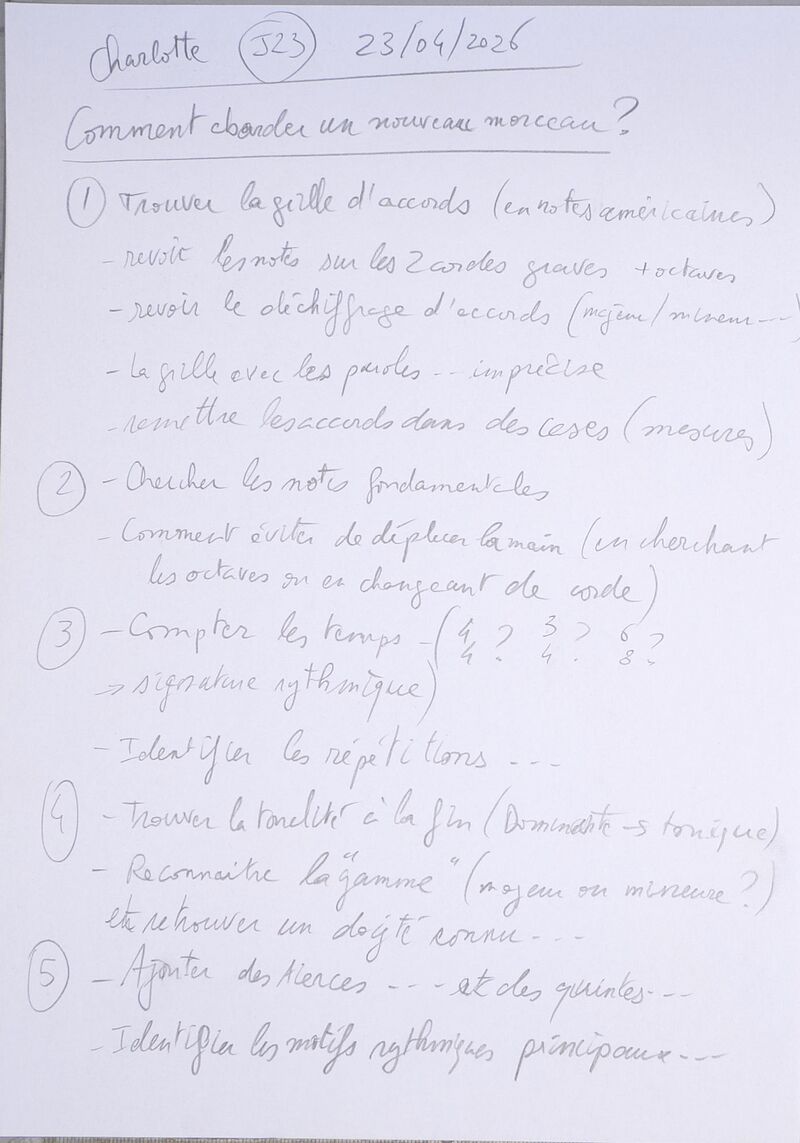 Charlotte J23 23/04/2026
Comment aborder un nouveau morceau ?
1 Trouver la grille d'accords (en notes américaines)
- revoir les notes sur les 2 cordes graves + octaves
- revoir le déchiffrage d'accords (majeur/mineur ---)
- La grille avec les paroles -- imprécise
- remettre les accords dans des cases (mesures)
2 - Chercher les notes fondamentales
- Comment éviter de déplacer la main (en cherchant
les octaves ou en changeant de corde)
3 - Compter les temps - (4/4 ? 3/4 ? 6/8 ?
→ signature rythmique)
- Identifier les répétitions ---
4 - Trouver la tonalité à la fin (Dominante → tonique)
- Reconnaitre la "gamme" (majeur ou mineure ?)
et retrouver un doigté connu ---
5 - Ajouter des tierces --- et des quintes ---
- Identifier les motifs rythmiques principaux ---